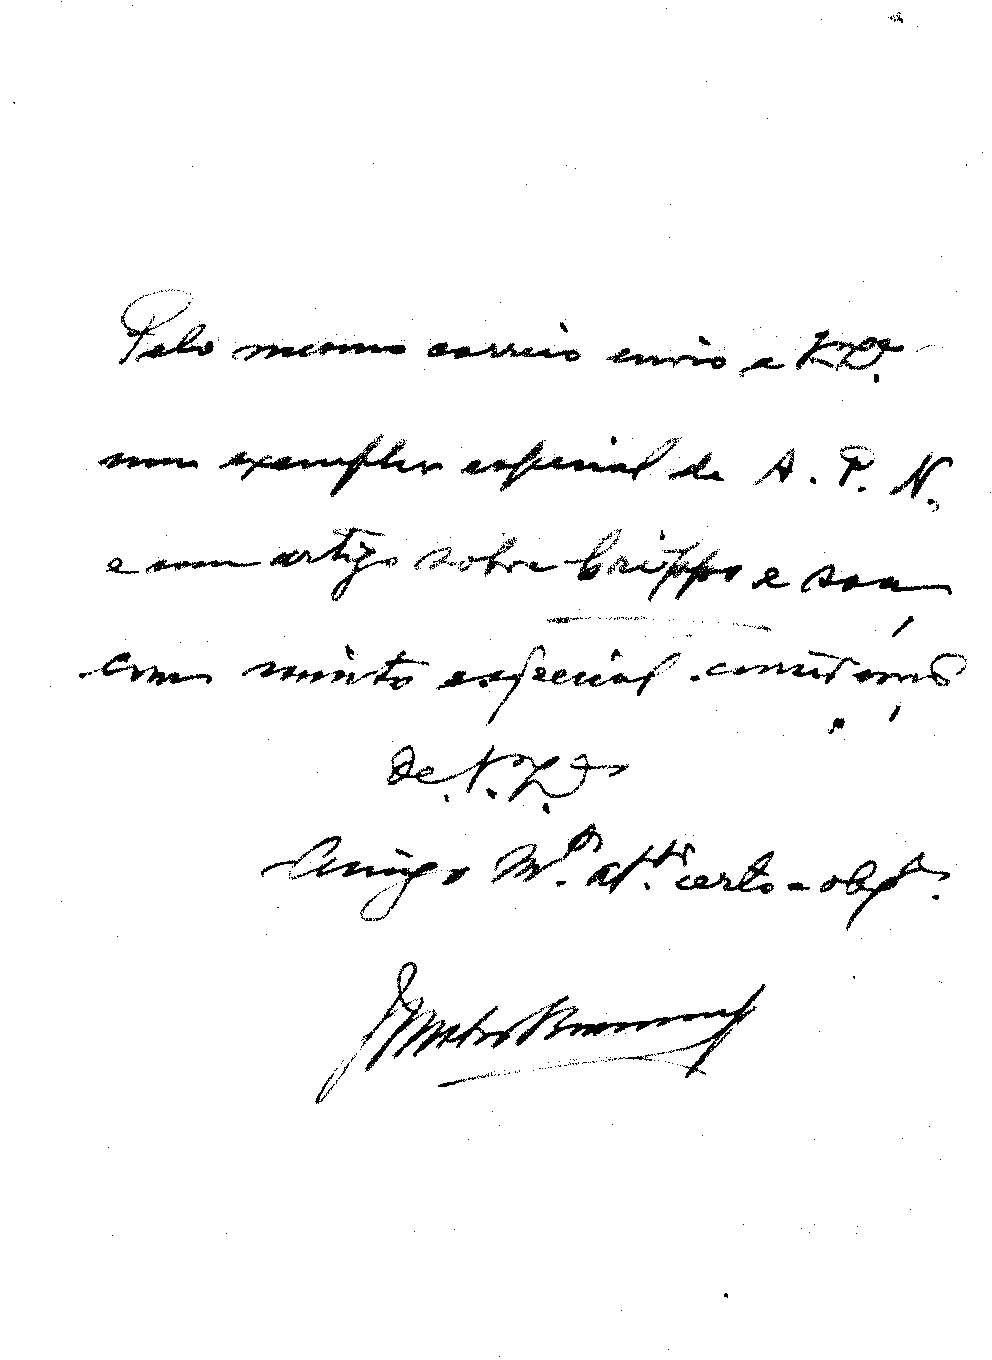 Pelo mesmo correio envio a V. Exª.
um exemplar especial de A. P. N.
e um artigo sobre Grippe e sou
com muito especial consid
de V. Exª
Amigo Mº. attº. certo e obgº.